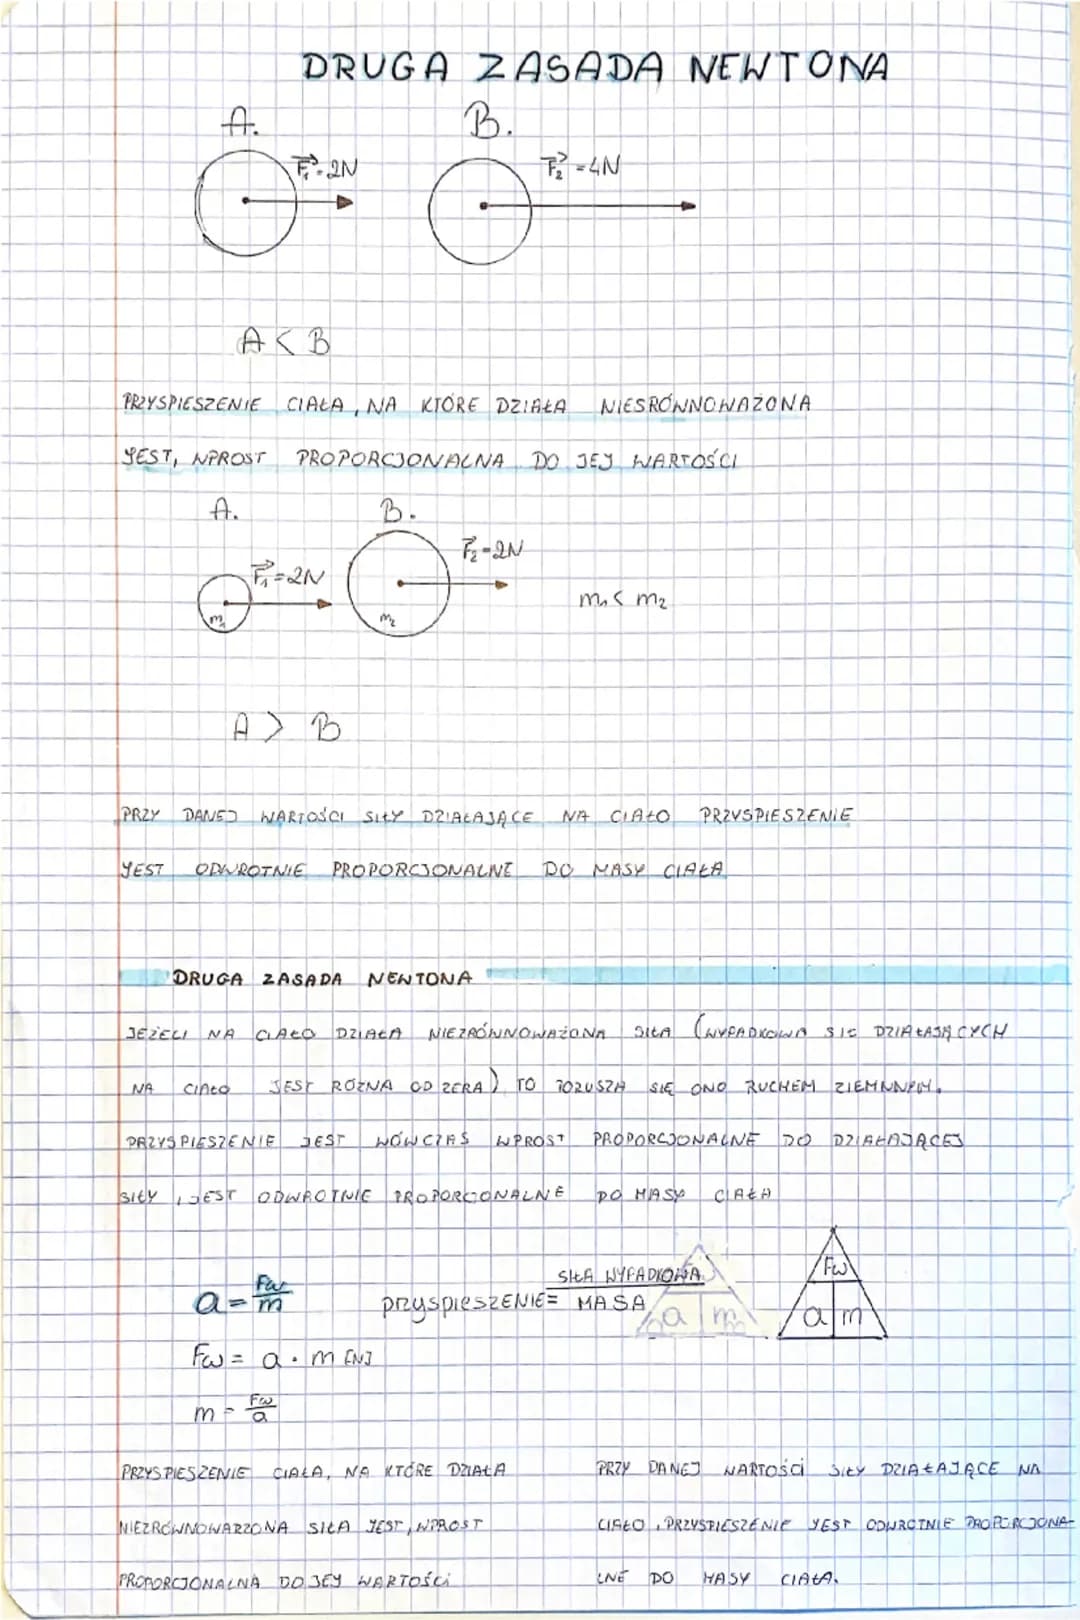 DRUGA ZASADA NEWTONA
A. B.
F₁ = 2N F₂ = 4N
A < B
PRZYSPIESZENIE CIAŁA, NA KTÓRE DZIAŁA NIESRÓWNOWAŻONA
JEST, WPROST PROPORCJONALNA DO JEJ WARTOŚCI
A. B.
F₂ = 2N
F₁ = 2N
m₁ < m₂
m₁ m₂
A > B
PRZY DANEJ WARTOŚCI SIŁY DZIAŁAJĄCE NA CIAŁO PRZYSPIESZENIE
JEST ODWROTNIE PROPORCJONALNE DO MASY CIAŁA
DRUGA ZASADA NEWTONA
JEŻELI NA CIAŁO DZIAŁA NIEZRÓWNOWAŻONA SIŁA (WYPADKOWA SIŁ DZIAŁAJĄCYCH
NA CIAŁO JEST RÓŻNA OD ZERA) TO PORUSZA SIĘ ONO RUCHEM ZIEMNNYM.
PRZYSPIESZENIE JEST WÓWCZAS WPROST PROPORCJONALNE DO DZIAŁAJĄCEJ
SIŁY, JEST ODWROTNIE PROPORCJONALNE DO MASY CIAŁA
a = Fw/m przyspieszENIE = SIŁA WYPADKOWA/MASA a m Fw a m
Fw = a · m [N]
m = Fw/a
PRZYSPIESZENIE CIAŁA, NA KTÓRE DZIAŁA
NIEZRÓWNOWARZONA SIŁA JEST, WPROST
PROPORCJONALNA DO JEJ WARTOŚCI
PRZY DANEJ WARTOŚCI SIŁY DZIAŁAJĄCE NA
CIAŁO, PRZYSPIESZENIE JEST ODWROTNIE PROPORCJONA-
LNE DO MASY CIAŁA.